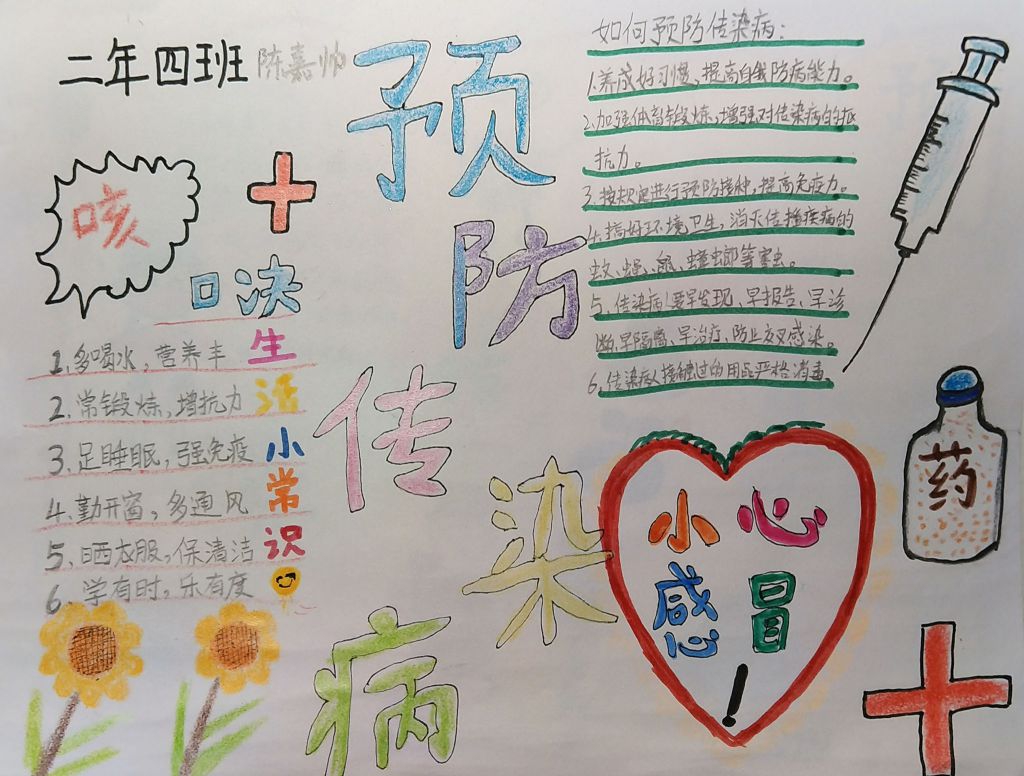 二年四班 陈嘉帅
预防传染病
咳
口决
1.多喝水，营养丰
2.常锻炼，增抗力
3.足睡眠，强免疫
4.勤开窗，多通风
5.晒衣服，保清洁
6.学有时，乐有度
生活小常识
如何预防传染病：
1.养成好习惯、提高自我防病能力。
2.加强体育锻炼，增强对传染病的抵
抗力。
3.按规定进行预防接种，提高免疫力。
4.搞好环境卫生，消灭传播疾病的
蚊、蝇、鼠、蟑螂等害虫。
5.传染病人要早发现、早报告、早诊
断，早隔离、早治疗，防止交叉感染。
6.传染病人接触过的用品严格消毒
小心
感冒
!
药